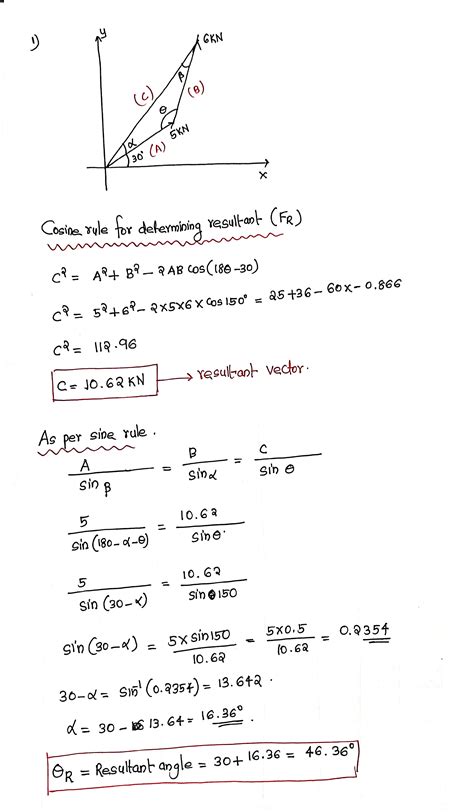 1)
y
6KN
β
(C)
(B)
θ
α
5KN
(A)
30°
x
Cosine rule for determining resultant (FR)
C² = A² + B² - 2AB cos(180-30)
C² = 5² + 6² - 2×5×6×cos150° = 25+36-60×-0.866
C² = 112.96
C = 10.62 KN → resultant vector.
As per sine rule.
A/sin β = B/sin α = C/sin θ
5/sin(180-α-θ) = 10.62/sin θ
5/sin(30-α) = 10.62/sin 150
sin(30-α) = 5×sin150/10.62 = 5×0.5/10.62 = 0.2354
30-α = sin⁻¹(0.2354) = 13.642.
α = 30 - 13.64 = 16.36°.
θR = Resultant angle = 30 + 16.36 = 46.36°